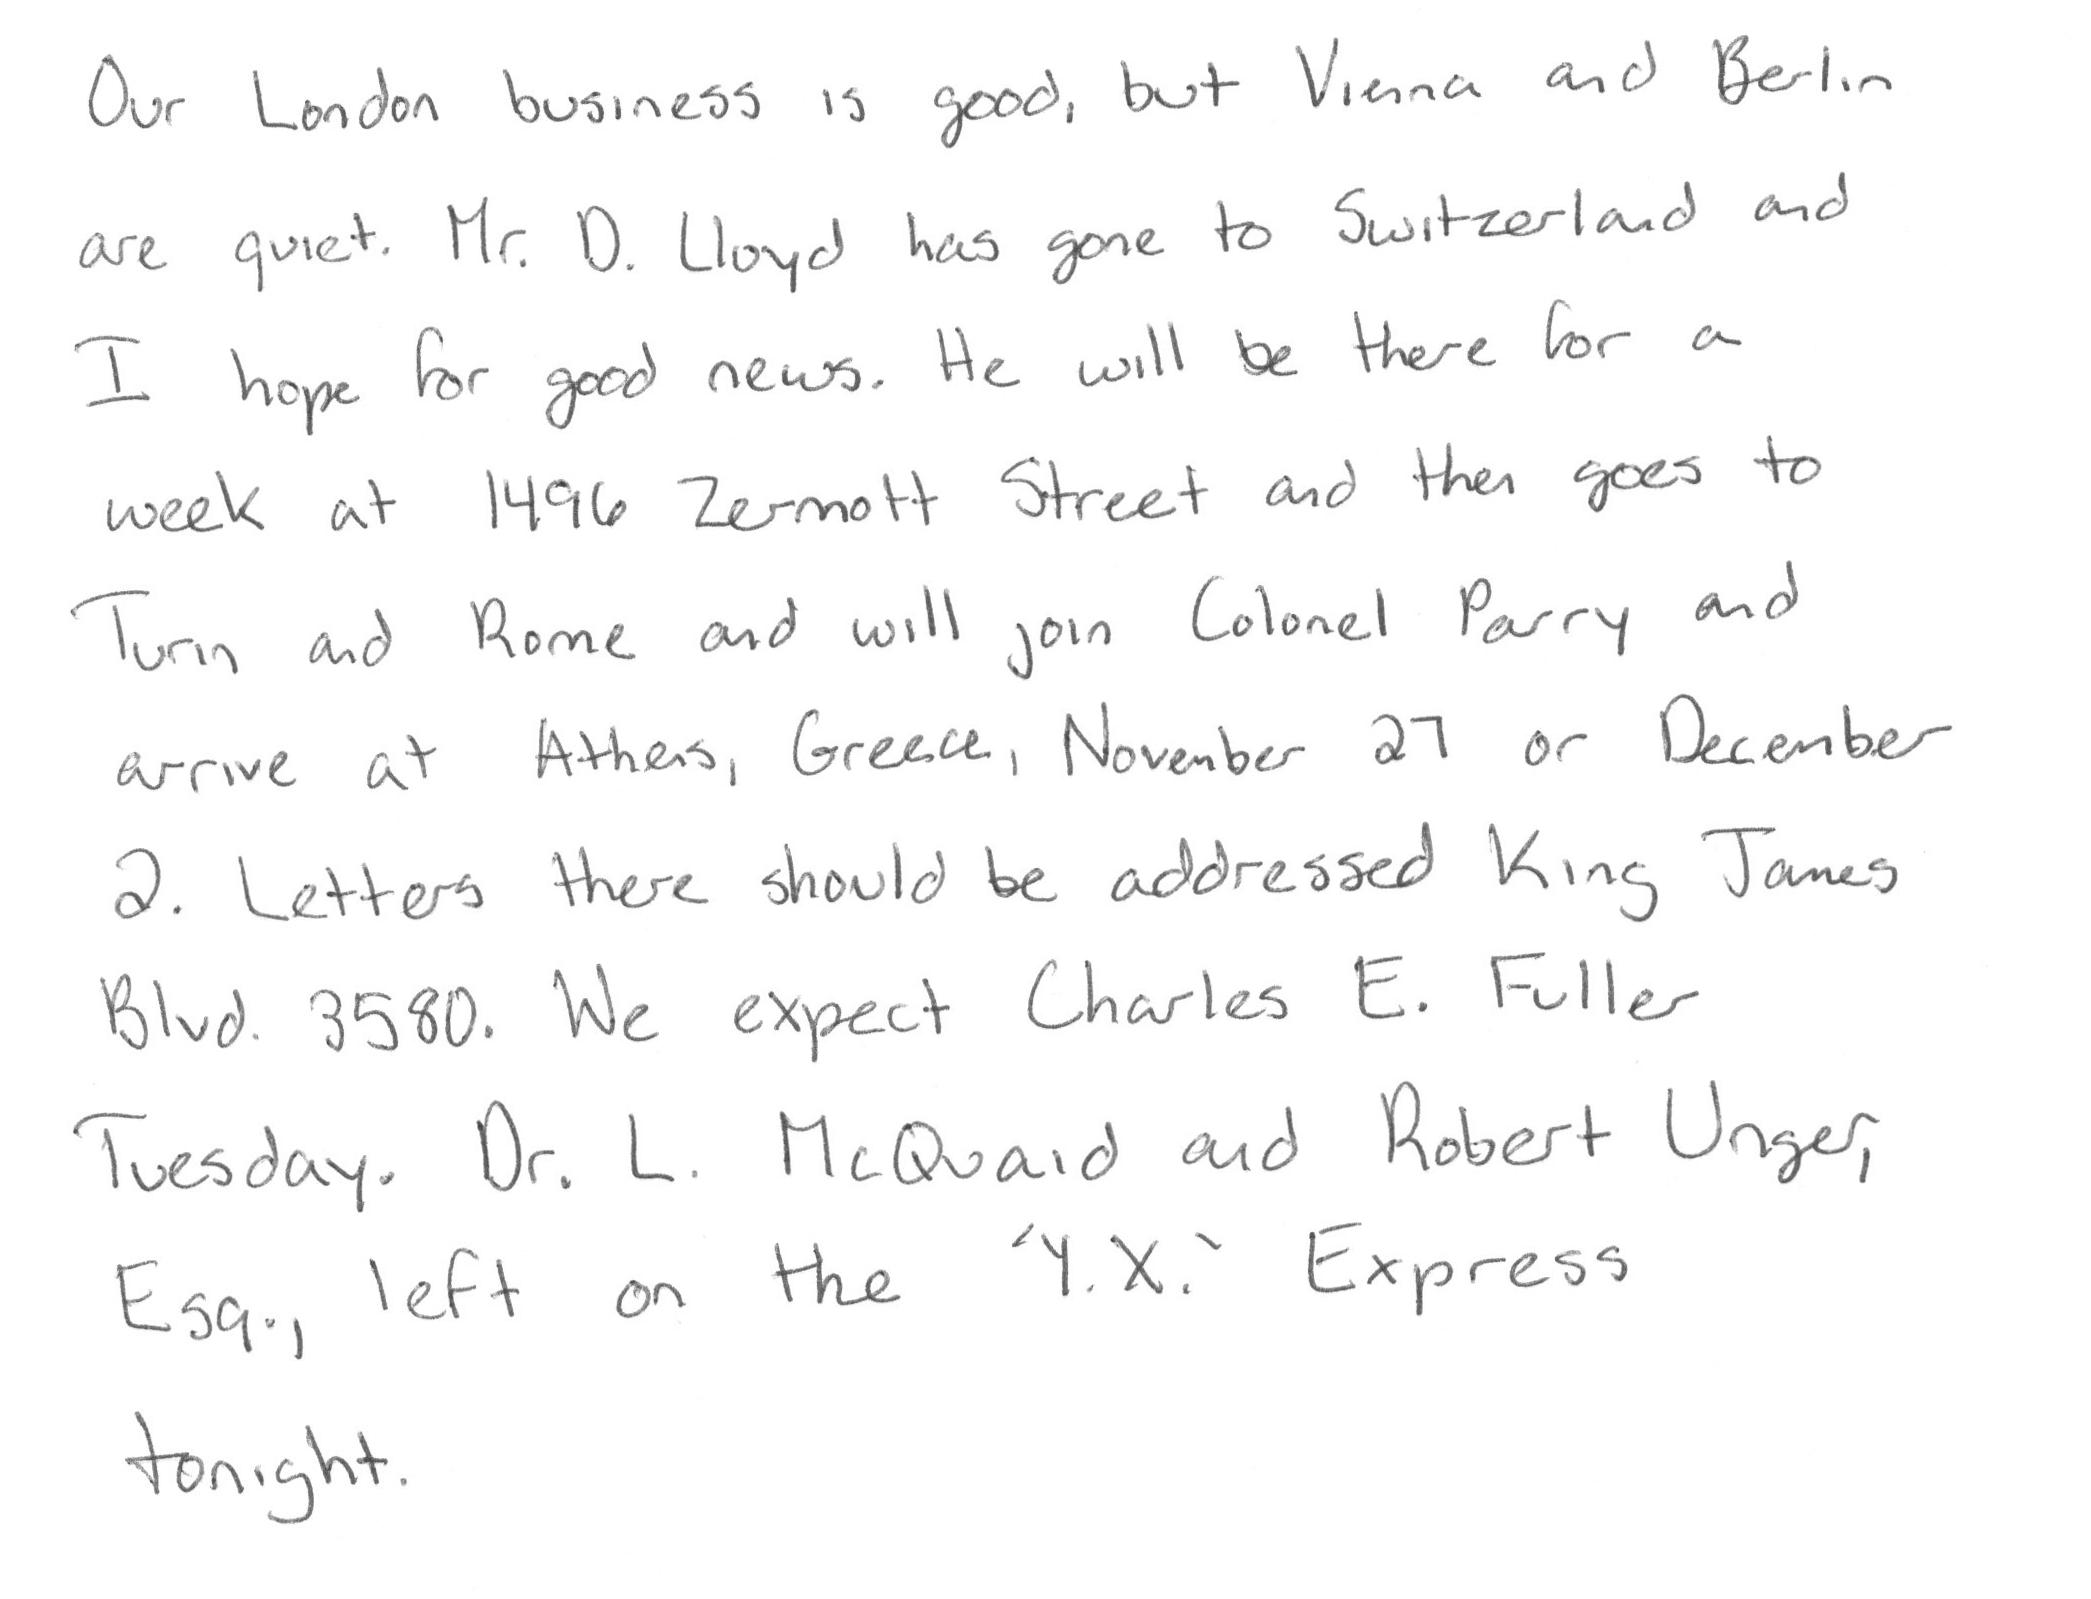 Our London business is good, but Vienna and Berlin
are quiet. Mr. D. Lloyd has gone to Switzerland and
I hope for good news. He will be there for a
week at 1496 Zermott Street and then goes to
Turin and Rome and will join Colonel Parry and
arrive at Athens, Greece, November 27 or December
2. Letters there should be addressed King James
Blvd. 3580. We expect Charles E. Fuller
Tuesday. Dr. L. McQuaid and Robert Unger,
Esq., left on the 'Y.X.' Express
tonight.